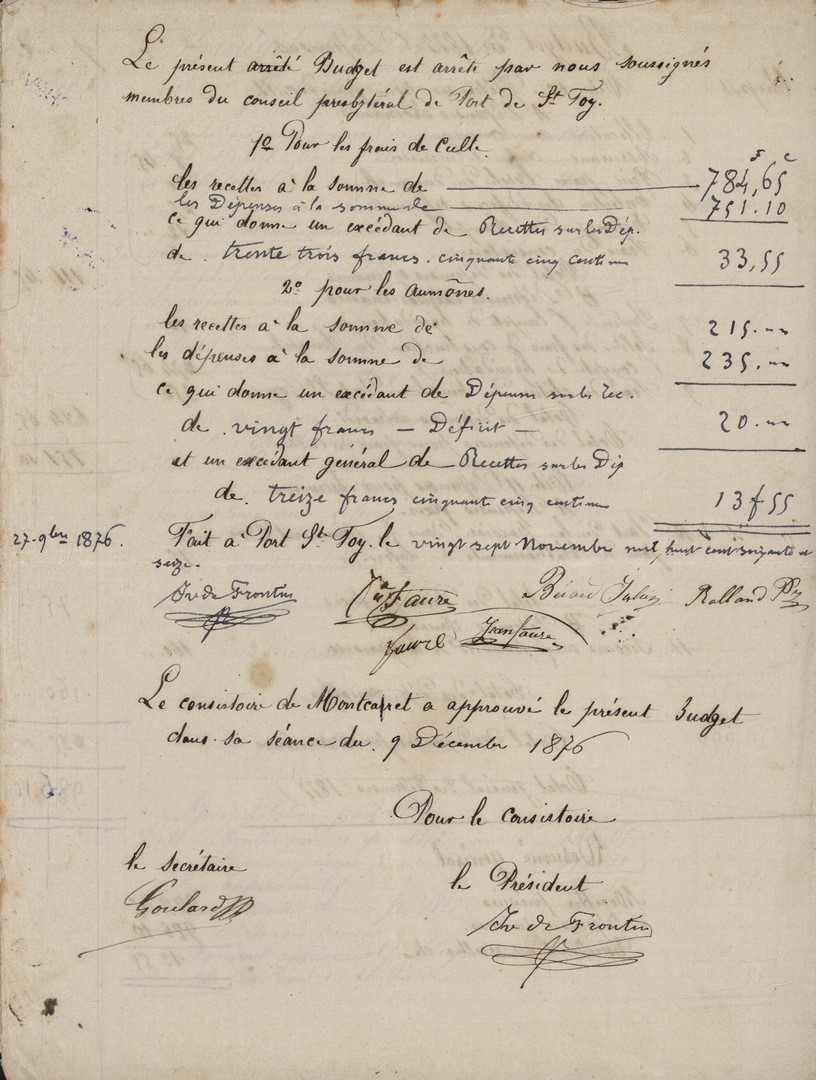 Le présent arrêté Budget est arrêté par nous soussignés
membres du conseil presbytéral de Port de Ste Foy.
1o Pour les frais de Culte.
f c
les recettes à la somme de 784,65
les Dépenses à la somme de 751.10
ce qui donne un excédant de Recettes sur les Dép.
de. trente trois francs. cinquante cinq centimes 33,55
2o pour les aumônes.
les recettes à la somme de 215.""
les dépenses à la somme de 235.""
ce qui donne un excédant de Dépenses sur les rec.
de. vingt francs — Déficit — 20.""
et un excédant général de Recettes sur les Dép
de. treize francs cinquante cinq centimes 13f55
27. 9bre 1876. Fait à Port Ste Foy. le vingt sept Novembre mil, huit cent soixante et
seize.
Faure Rolland
Faure Jean Faure
Le consistoire de Montcarret a approuvé le présent Budget
dans sa séance du. 9 Décembre 1876
Pour le consistoire
le secrétaire
le Président
Goulard